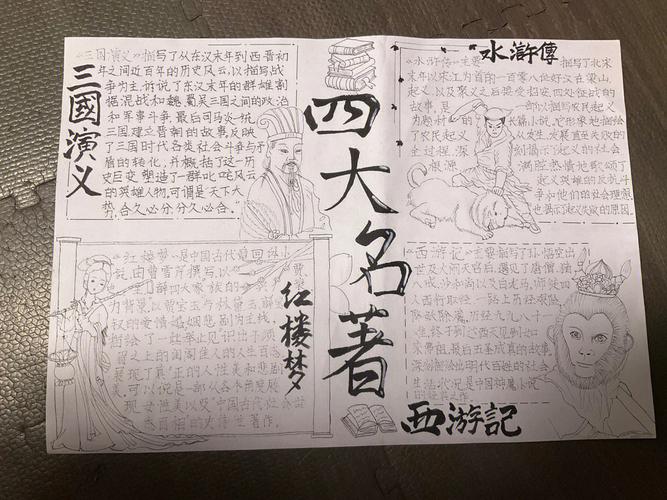 四大名著
三國演义
《三国演义》描写了从东汉末年到西晋初
年之间近百年的历史风云，以描写战
争为主，诉说了东汉末年的群雄割
据混战和魏、蜀、吴三国之间的政治
和军事斗争，最后司马炎一统
三国，建立晋朝的故事，反映
了三国时代各类社会斗争与矛
盾的转化，并概括了这一历
史巨变，塑造了一群叱咤风云
的英雄人物。可谓是“天下大
势，合久必分，分久必合。”
水滸傳
《水浒传》主要描写了北宋
末年以宋江为首的一百零八位好汉在梁山
起义，以及聚义之后接受招安、四处征战的
故事，是一部以描写农民起义
为题材的长篇小说，它形象地描绘
了农民起义从发生、发展直至失败的
全过程，深刻揭示了起义的社会
根源，满腔热情地歌颂了
起义英雄的反抗斗
争和他们的社会理想，
也揭示了起义失败的原因。
红楼梦
《红楼梦》是中国古代章回体小
说，由曹雪芹撰写，以
薛四大家族的
为背景，以贾宝玉与林黛玉、薛宝
钗的爱情婚姻悲剧为主线，
描绘了一些举止见识出于须
眉之上的闺阁佳人的人生百态，
展现了真正的人性美和悲剧
美，可以说是一部从各个角度展
现女性美以及中国古代社会世
态百相的史诗性著作。
西游記
《西游记》主要描写了孙悟空出
世及大闹天宫后，遇见了唐僧、猪
八戒、沙和尚以及白龙马，师徒四
人西行取经，一路上历经艰险，
降妖除魔，历经九九八十
一难，终于到达西天见到如
来佛祖，最后五圣成真的故事，
深刻描绘出明代百姓的社会
生活状况，是中国神魔小说